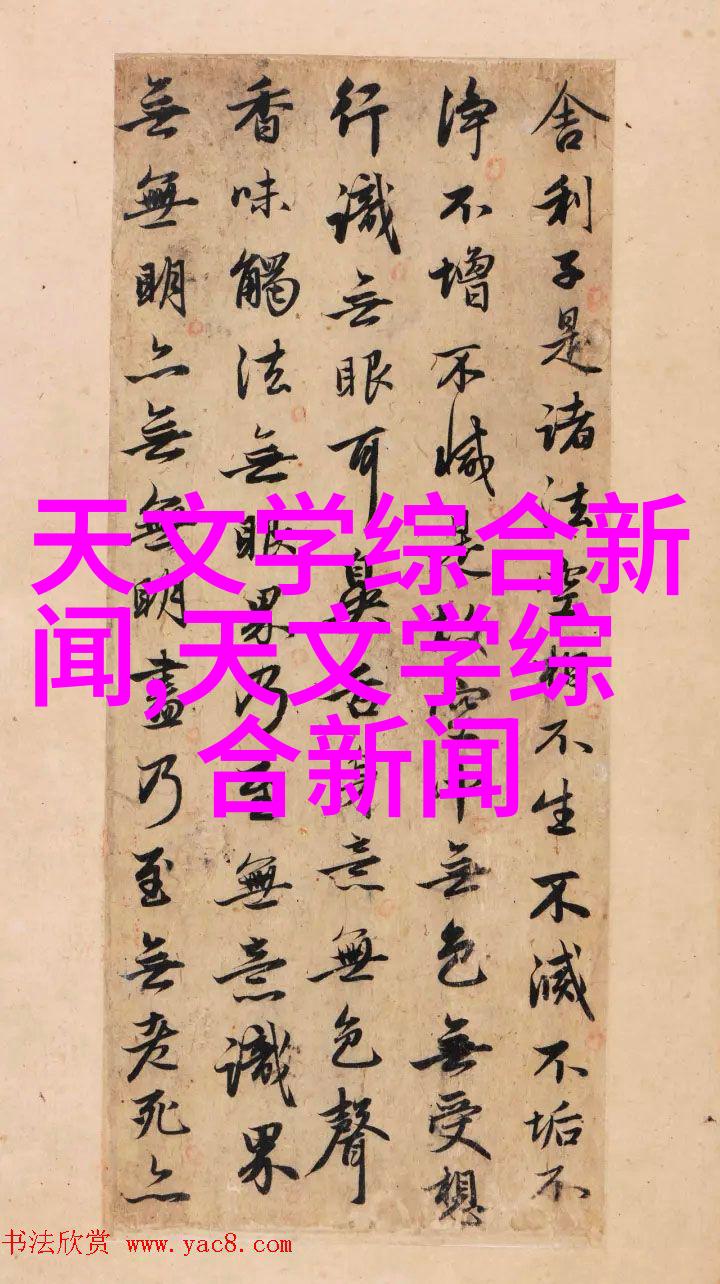 舍利子是諸法空相不生不滅不垢不
淨不增不減是故空中無色無受想
行識無眼耳鼻舌身意無色聲
香味觸法無眼界乃至無意識界
無無明亦無無明盡乃至無老死亦
天文学综合新
闻,天文学综
合新闻
书法欣赏 www.yac8.com